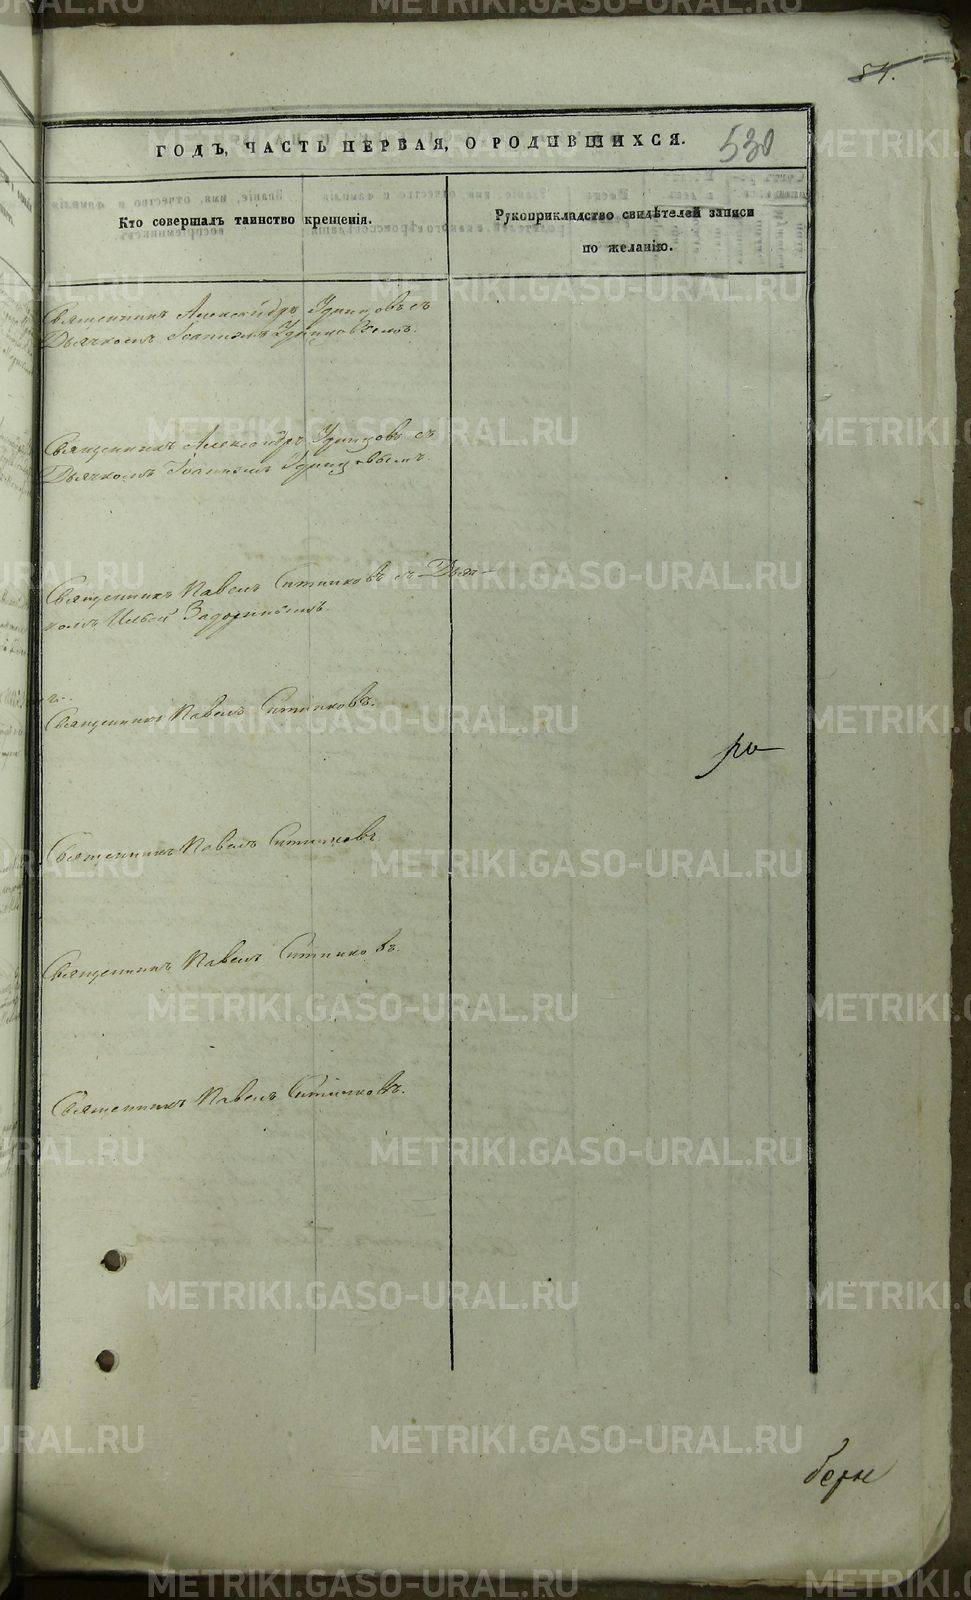 54.
530
ГОДЪ, ЧАСТЬ ПЕРВАЯ, О РОДИВШИХСЯ.
Кто совершалъ таинство крещенія.
Рукоприкладство свидѣтелей записи
по желанію.
Священникъ Александръ Удинцовъ съ
Дьячкомъ Іоанномъ Удинцовымъ.
Священникъ Александръ Удинцовъ съ
Дьячкомъ Іоанномъ Удинцовымъ.
Священникъ Павелъ Ситниковъ съ Дьяч-
комъ Ильей Задоринымъ.
Священникъ Павелъ Ситниковъ.
ро
Священникъ Павелъ Ситниковъ.
Священникъ Павелъ Ситниковъ.
Священникъ Павелъ Ситниковъ.
METRIKI.GASO-URAL.RU